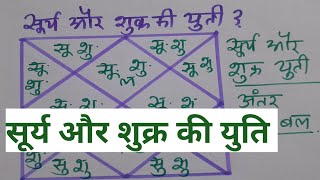 सूर्य और शुक्र की युती ?
सू॰ शु
सू॰ शु
सू॰
शु
सू॰ शु॰
ल
सू॰ शु
सूर्य और
शुक्र युती
अंतर
बल
सूर्य और शुक्र की युति
शु॰
सु शु
सु शु